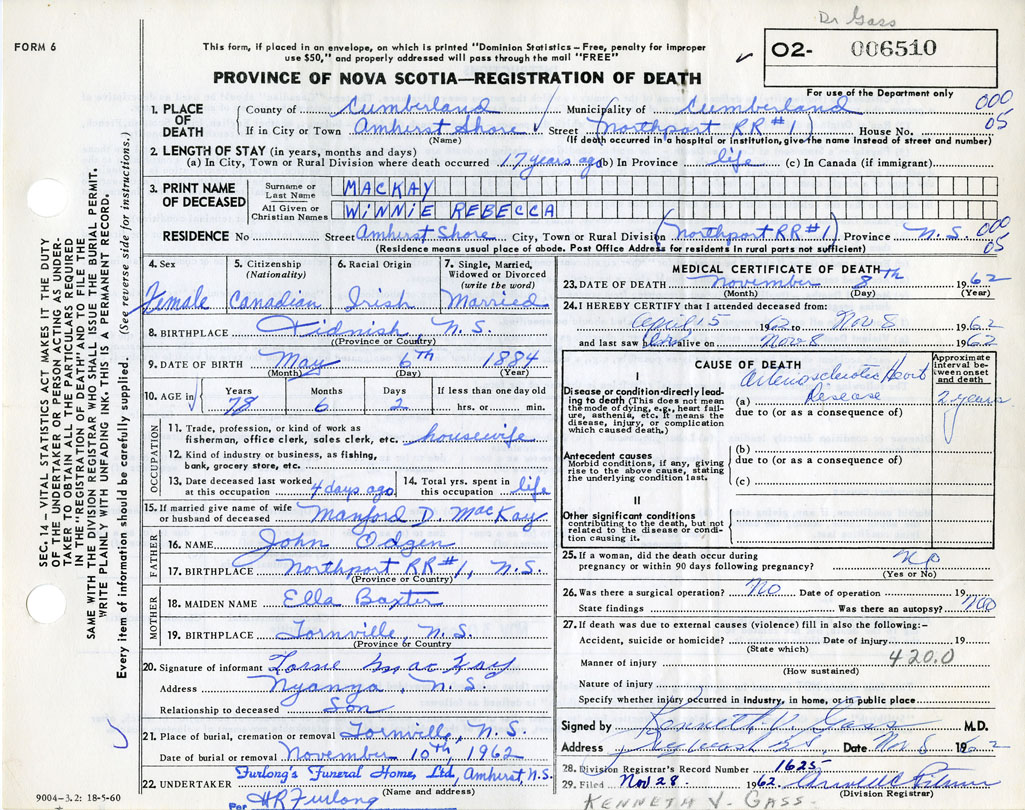 Dr Gass
FORM 6
This form, if placed in an envelope, on which is printed "Dominion Statistics – Free, penalty for improper
use $50," and properly addressed will pass through the mail "FREE"
02- 006510
PROVINCE OF NOVA SCOTIA—REGISTRATION OF DEATH
For use of the Department only
1. PLACE OF DEATH County of Cumberland Municipality of Cumberland 000
If in City or Town Amherst Shore Street (Northport RR #1) House No. 05
(Name) (If death occurred in a hospital or institution, give the name instead of street and number)
2. LENGTH OF STAY (in years, months and days)
(a) In City, Town or Rural Division where death occurred 17 years ago (b) In Province life (c) In Canada (if immigrant)
3. PRINT NAME OF DECEASED Surname or Last Name MACKAY
All Given or Christian Names WINNIE REBECCA
RESIDENCE No Street Amherst Shore City, Town or Rural Division (Northport RR #1) Province N.S. 000 05
(Residence means usual place of abode. Post Office Address for residents in rural parts not sufficient)
4. Sex Female
5. Citizenship (Nationality) Canadian
6. Racial Origin Irish
7. Single, Married, Widowed or Divorced (write the word) Married
8. BIRTHPLACE Tidnish, N.S.
(Province or Country)
9. DATE OF BIRTH May 6th 1884
(Month) (Day) (Year)
10. AGE in Years 78 Months 6 Days 2 If less than one day old hrs. or min.
OCCUPATION
11. Trade, profession, or kind of work as
fisherman, office clerk, sales clerk, etc. housewife
12. Kind of industry or business, as fishing,
bank, grocery store, etc.
13. Date deceased last worked at this occupation 4 days ago
14. Total yrs. spent in this occupation life
15. If married give name of wife
or husband of deceased Manford D. MacKay
FATHER
16. NAME John Odgen
17. BIRTHPLACE Northport RR #1, N.S.
(Province or Country)
MOTHER
18. MAIDEN NAME Ella Baxter
19. BIRTHPLACE Lornville, N.S.
(Province or Country)
20. Signature of informant MacKay
Address Nyanza, N.S.
Relationship to deceased Son
21. Place of burial, cremation or removal Lornville, N.S.
Date of burial or removal November 10th, 1962
22. UNDERTAKER Furlong's Funeral Home, Ltd, Amherst N.S.
(Name and address)
Per HR Furlong
9004-3.2: 18-5-60
MEDICAL CERTIFICATE OF DEATH
23. DATE OF DEATH November 8th 1962
(Month) (Day) (Year)
24. I HEREBY CERTIFY that I attended deceased from:
April 5 1962 to Nov 8 1962
and last saw her alive on Nov 8 1962
CAUSE OF DEATH
Approximate interval between onset and death
I
Disease or condition directly leading to death (This does not mean the mode of dying, e.g., heart failure, asthenia, etc. It means the disease, injury, or complication which caused death.)
(a) Arteriosclerotic Heart Disease 2 years
due to (or as a consequence of)
Antecedent causes
Morbid conditions, if any, giving rise to the above cause, stating the underlying condition last.
(b)
due to (or as a consequence of)
(c)
II
Other significant conditions
contributing to the death, but not related to the disease or condition causing it.
25. If a woman, did the death occur during
pregnancy or within 90 days following pregnancy? No
(Yes or No)
26. Was there a surgical operation? No Date of operation 19
State findings Was there an autopsy? No
27. If death was due to external causes (violence) fill in also the following:-
Accident, suicide or homicide? Date of injury 19
(State which)
Manner of injury 420.0
(How sustained)
Nature of injury
Specify whether injury occurred in industry, in home, or in public place
Signed by Kenneth V. Gass M.D.
Address Date Nov 8 1962
28. Division Registrar's Record Number 1625
29. Filed Nov 28 1962
(Division Registrar)
KENNETH V. GASS.
SEC. 14 – VITAL STATISTICS ACT MAKES IT THE DUTY
OF THE UNDERTAKER OR PERSON ACTING AS UNDER-
TAKER TO OBTAIN ALL THE PARTICULARS REQUIRED
IN THE "REGISTRATION OF DEATH" AND TO FILE THE
SAME WITH THE DIVISION REGISTRAR WHO SHALL ISSUE THE BURIAL PERMIT.
WRITE PLAINLY WITH UNFADING INK. THIS IS A PERMANENT RECORD.
Every item of information should be carefully supplied. (See reverse side for instructions.)